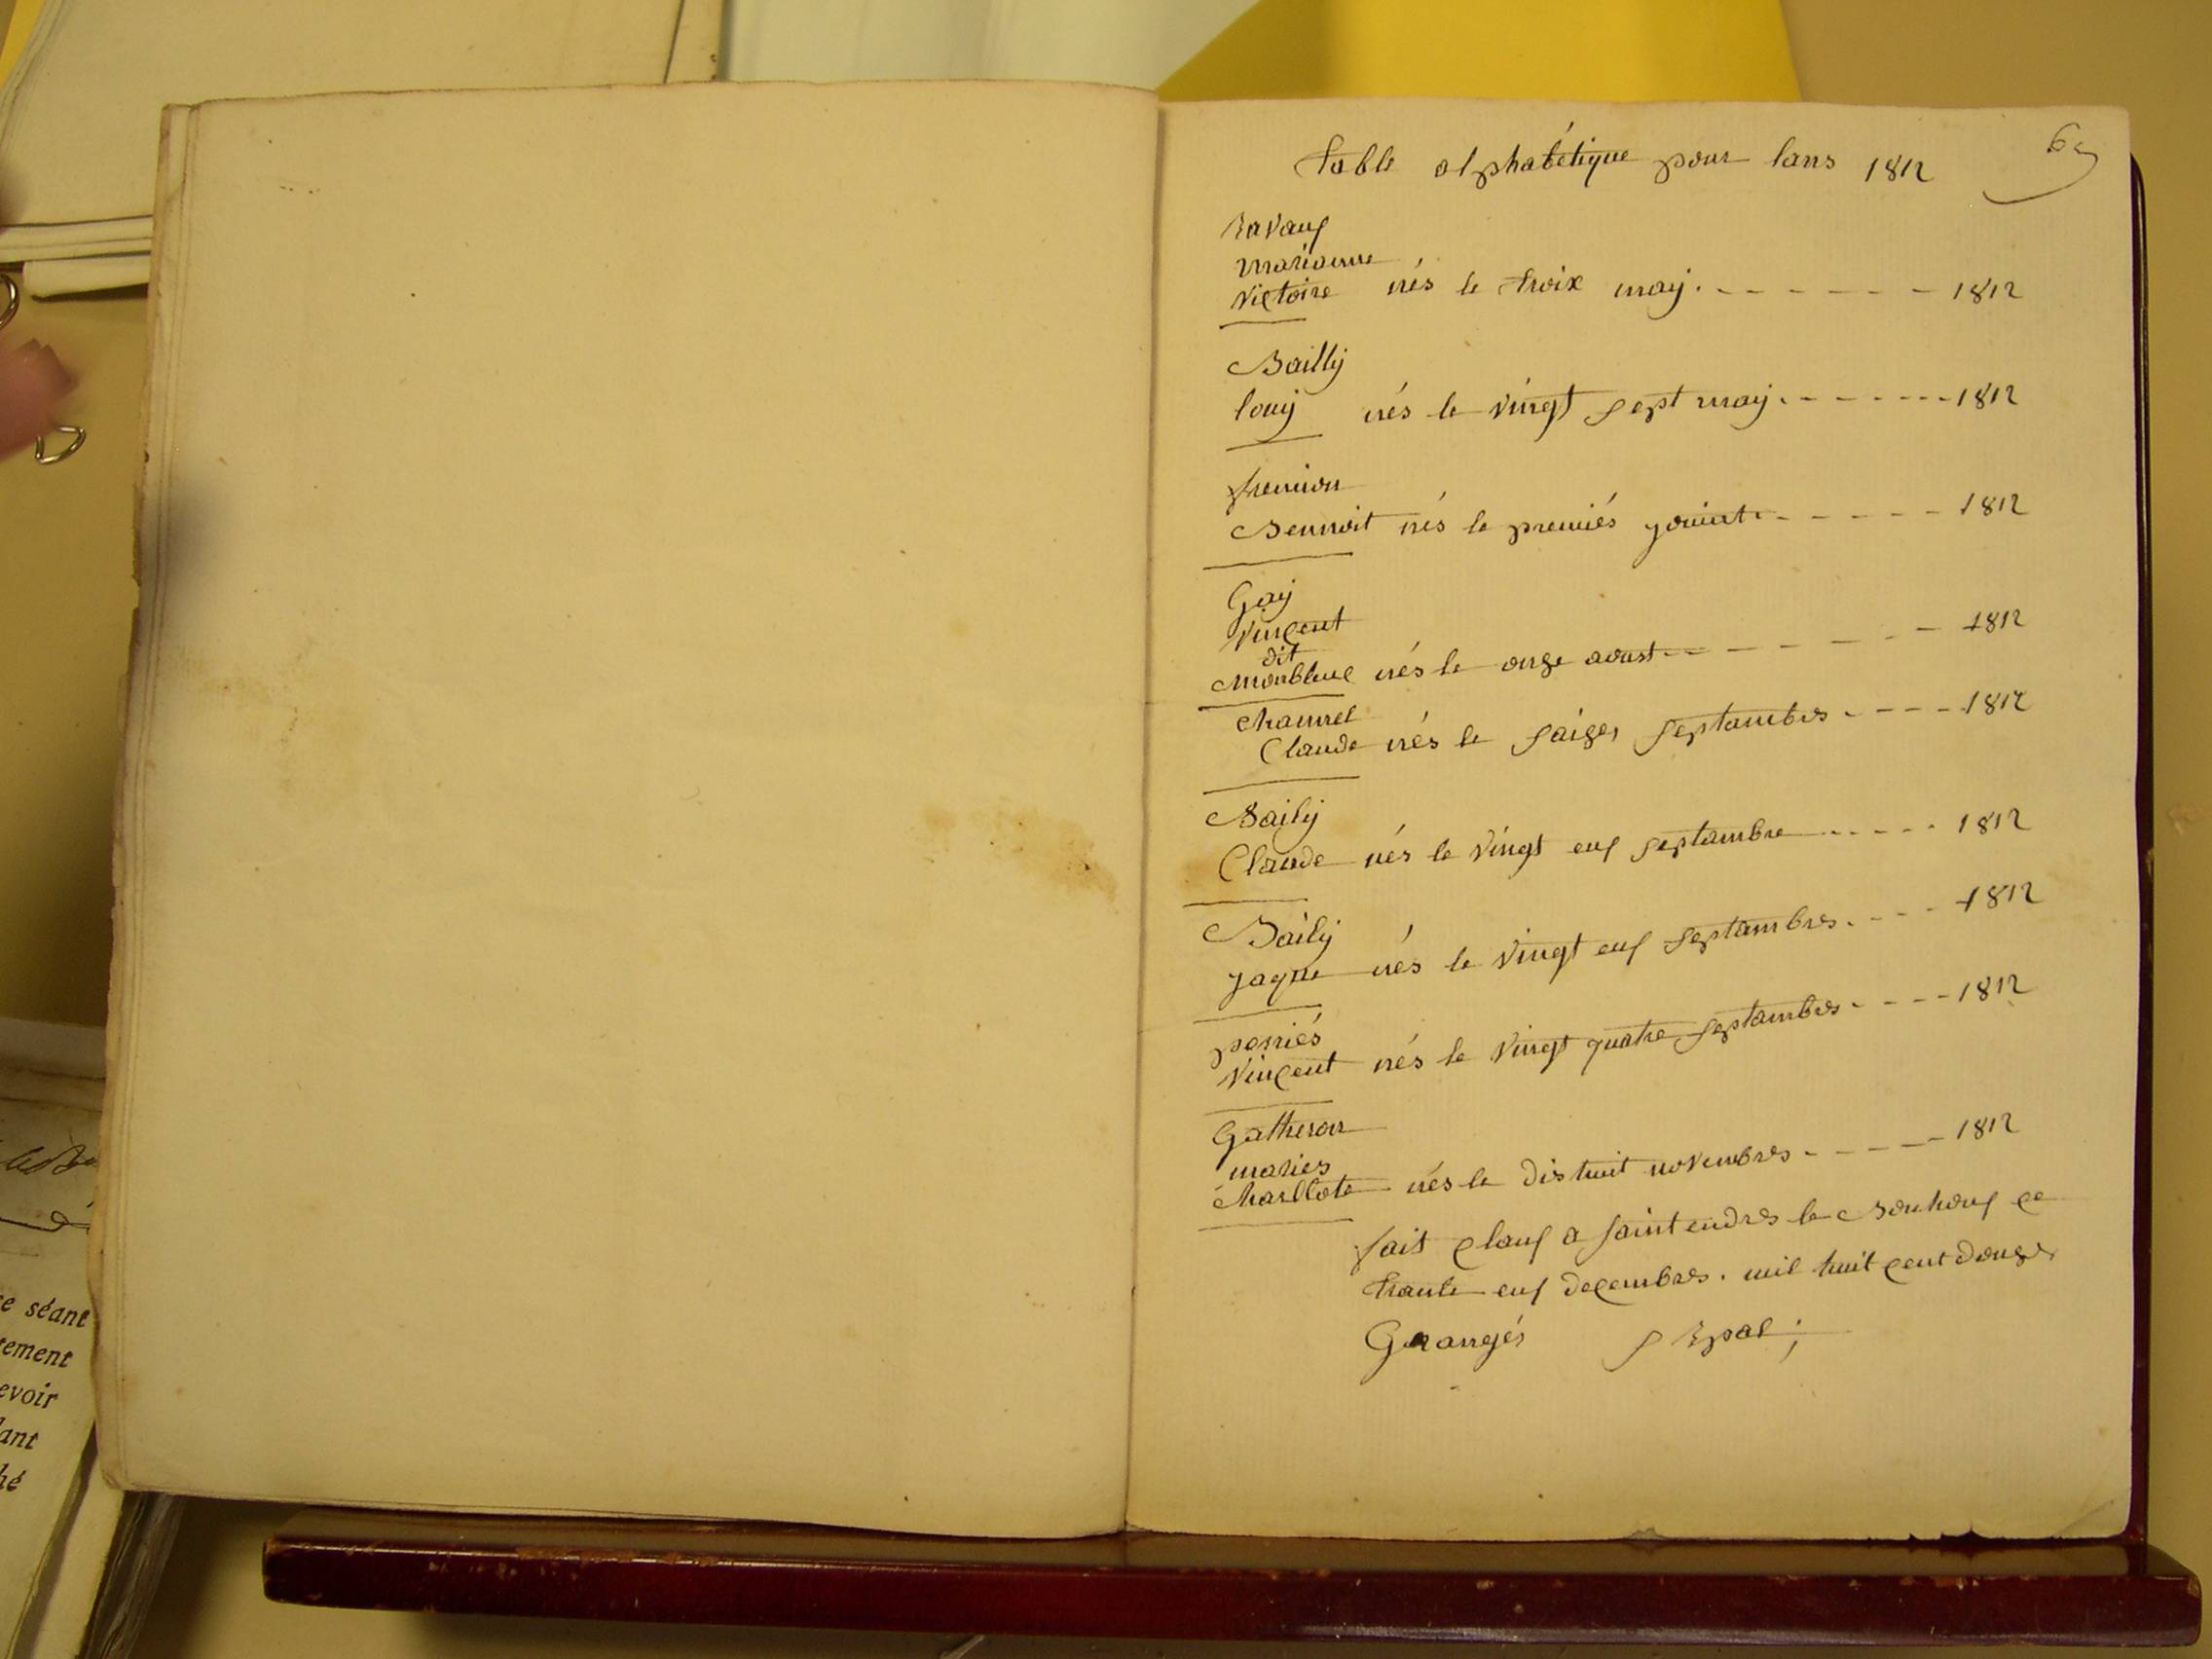 table alphabétique pour lans 1812
Ravaus
marianne
victoire nés le troix may. - - - - - - 1812
Bailly
louy nés le vingt sept may. - - - - - - 1812
fremion
Bennoit nés le premiés jouint. - - - - - 1812
Gay
Vincent
dit
monbluel nés le onze aoust - - - - - - 1812
chamrel
Claude nés le saizes septambres - - - - 1812
Baily
Claude nés le vingt euf septambre - - - - - 1812
Baily
jaque nés le vingt euf septambres. - - - 1812
perriés
Vincent nés le vingt quatre septambres - - - - 1812
Gatheron
maries
charllote nés le dis huit novembres - - - - - 1812
fait claus a saint endres le ce
trante euf decembres. mil huit cent douzes
Grangés
e séant
tement
evoir
ant
hé